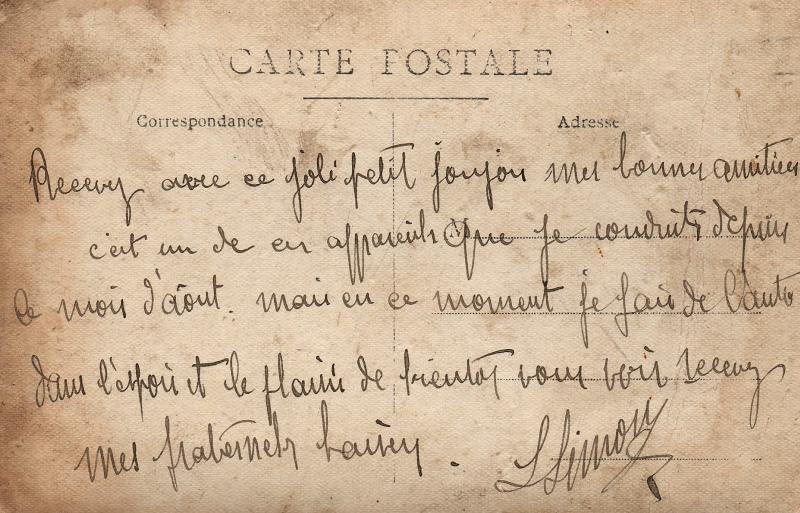 CARTE POSTALE
Correspondance
Adresse
Recevez avec ce joli petit joujou mes bonnes amitiées
c'est un de ces appareils que je conduits depuis
le mois d'aout. mais en ce moment je fais de l'auto
dans l'espoir et le plaisir de bientot vous voir recevez
mes fraternels baisers.
LSimon